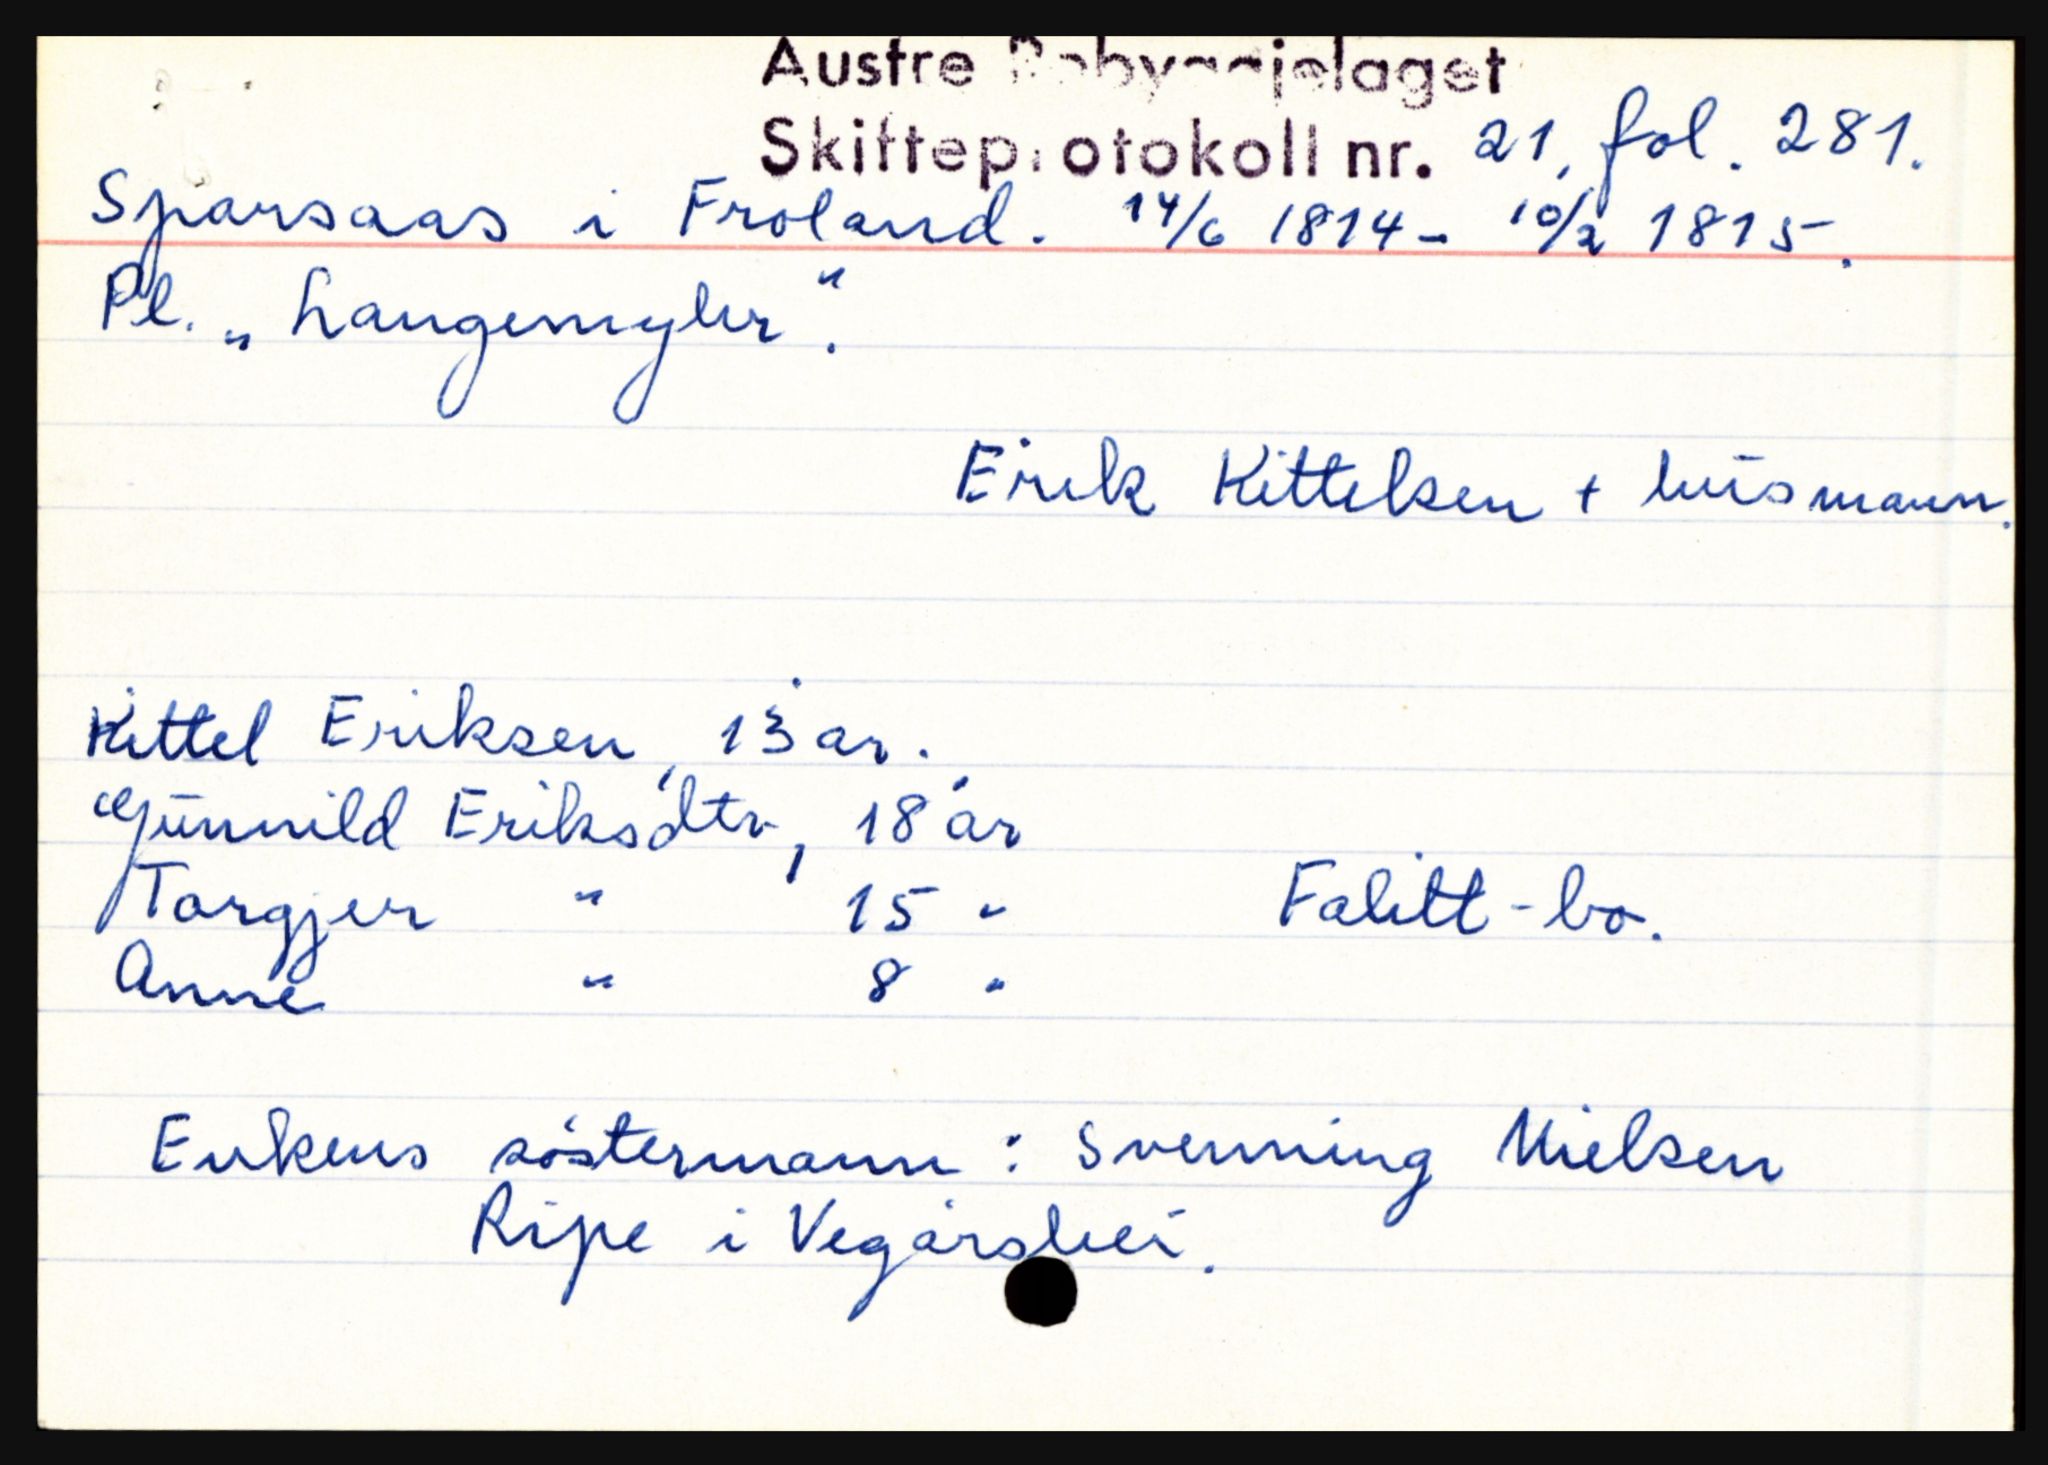 Austre Robyggjelaget
Skifteprotokoll nr. 21, fol. 281.
Sparsaas i Froland. 14/6 1814 - 10/2 1815.
Pl. „Langemyhr“.
Eirik Kittelsen + husmann.
Kittel Eriksen, 13 år.
Gunnild Eriksdtr, 18 år
Torgjer " 15 "
Falitt-bo.
Anne " 8 "
Eirikens söstermann : Svenning Nielsen
Ripe i Vegårshei.